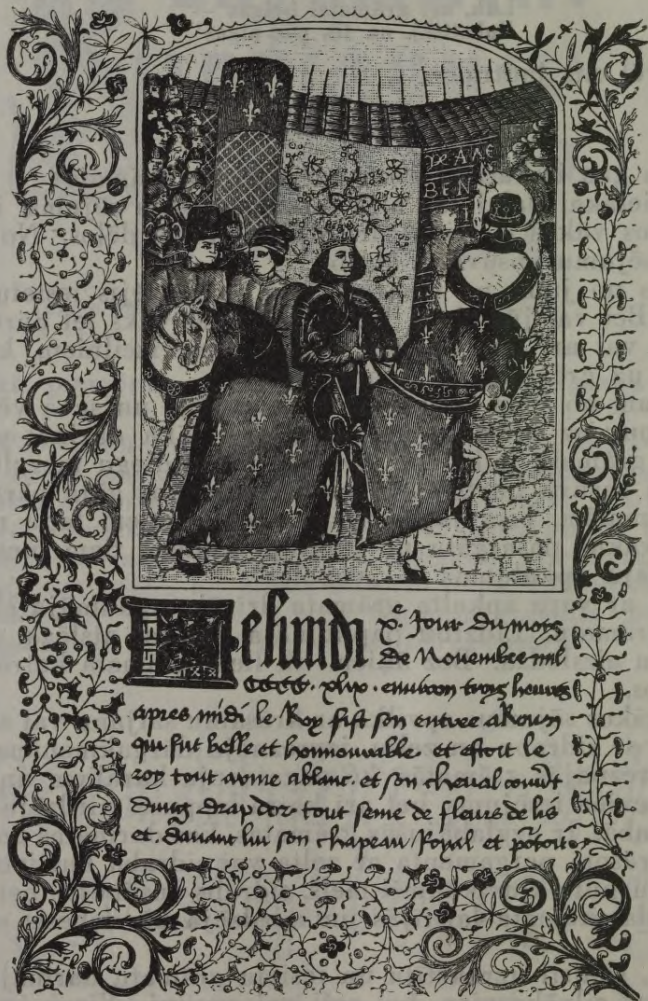 DE AAE
BEN
Lelundi xe. Jour du moys
de Novembre mil
CCCC. xlix. environ troys heures
apres midi le Roy fist son entree a Rouen
qui fut belle et honnourable. et estoit le
roy tout arme a blanc. et son cheval couvert
dung drap dor. tout seme de fleurs de lis
et. davant lui son chapeau Royal et